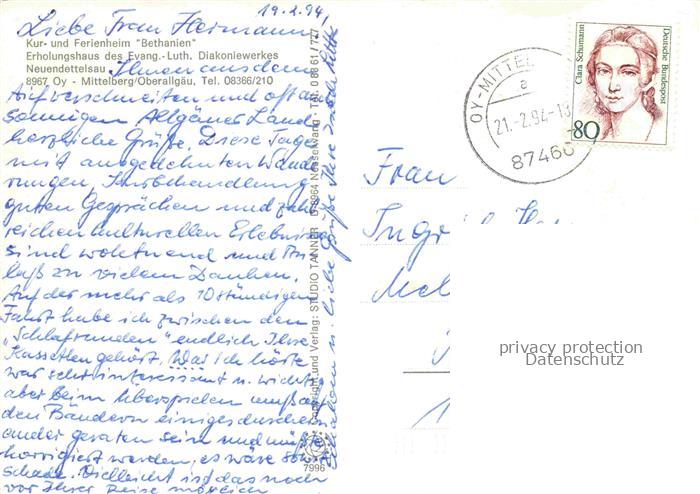 19.2.94,
Liebe Frau Hermann,
Kur- und Ferienheim "Bethanien"
Erholungshaus des Evang.-Luth. Diakoniewerkes
Neuendettelsau
8967 Oy - Mittelberg/Oberallgäu, Tel. 08366/210
Ihnen aus dem
tief verschneiten und oft
sonnigen Allgäuer Land
herzliche Grüße. Diese Tage
mit ausgedehnten Wande
rungen, Kurbehandlung
guten Gesprächen und zahl
reichen kulturellen Erlebnissen
sind wohltuend und An
laß zu vielem Danken.
Auf der mehr als 10 stündigen
Fahrt habe ich zwischen den
„Schlafrunden" endlich Ihre
Kassetten gehört. Was ich hörte
war sehr interessant u. wichtig
aber beim Überspielen muß auf
den Bändern einiges durchein
ander geraten sein und müßte
korrigiert werden, es wäre sonst
schade. Vielleicht ist das noch
vor Ihrer Reise möglich
u. liebe Grüße Ihre
Copyright und Verlag: STUDIO TANNER · D-8964 Nesselwang · Tel. 0 83 61 / 727
7996
OY-MITTEL
a
21.-2.94-18
87466
Clara Schumann
Deutsche Bundespost
80
Frau
privacy protection
Datenschutz